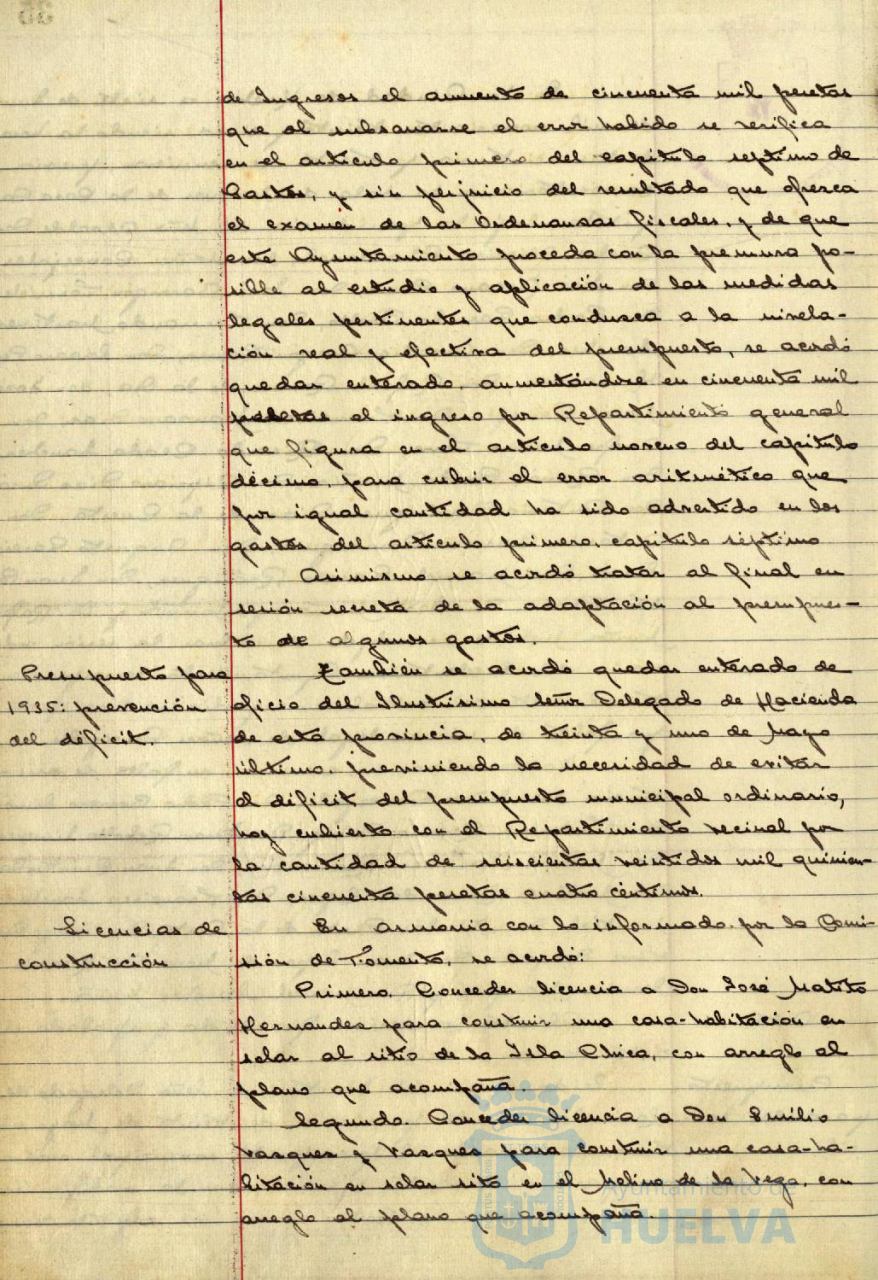 de Ingresos el aumento de cincuenta mil pesetas
que al subsanarse el error habido se verifica
en el artículo primero del capítulo septimo de
Gastos, y sin perjuicio del resultado que ofrezca
el examen de las Ordenansas fiscales, y de que
este Ayuntamiento proceda con la premura po-
sible al estudio y aplicación de las medidas
legales pertinentes que conduzca a la nivela-
ción real y efectiva del presupuesto, se acordó
quedar enterado, aumentándose en cincuenta mil
pesetas el ingreso por Repartimiento general
que figura en el artículo noveno del capítulo
décimo, para cubrir el error aritmético que
por igual cantidad ha sido advertido en los
gastos del artículo primero, capítulo séptimo
Asimismo se acordó tratar al final en
sesión secreta de la adaptación al presupues-
to de algunos gastos.
Presupuesto para
1935: prevención
del déficit.
También se acordó quedar enterado de
oficio del Ilustrísimo Señor Delegado de Hacienda
de esta provincia, de treinta y uno de Mayo
último, previniendo la necesidad de evitar
el déficit del presupuesto municipal ordinario,
hoy cubierto con el Repartimiento vecinal por
la cantidad de seiscientas veintidos mil quinien-
tas cincuenta pesetas cuatro céntimos.
Licencias de
construcción
En armonia con lo informado por la Comi-
sión de Fomento, se acordó:
Primero. Conceder licencia a Don José Matito
Hernandez para construir una casa-habitación en
solar al sitio de la Isla Chica, con arreglo al
plano que acompaña.
Segundo. Conceder licencia a Don Emilio
Vazquez y Vazquez para construir una casa-ha-
bitación en solar sito en el Molino de la Vega, con
arreglo al plano que acompaña.
Ayuntamiento de
HUELVA